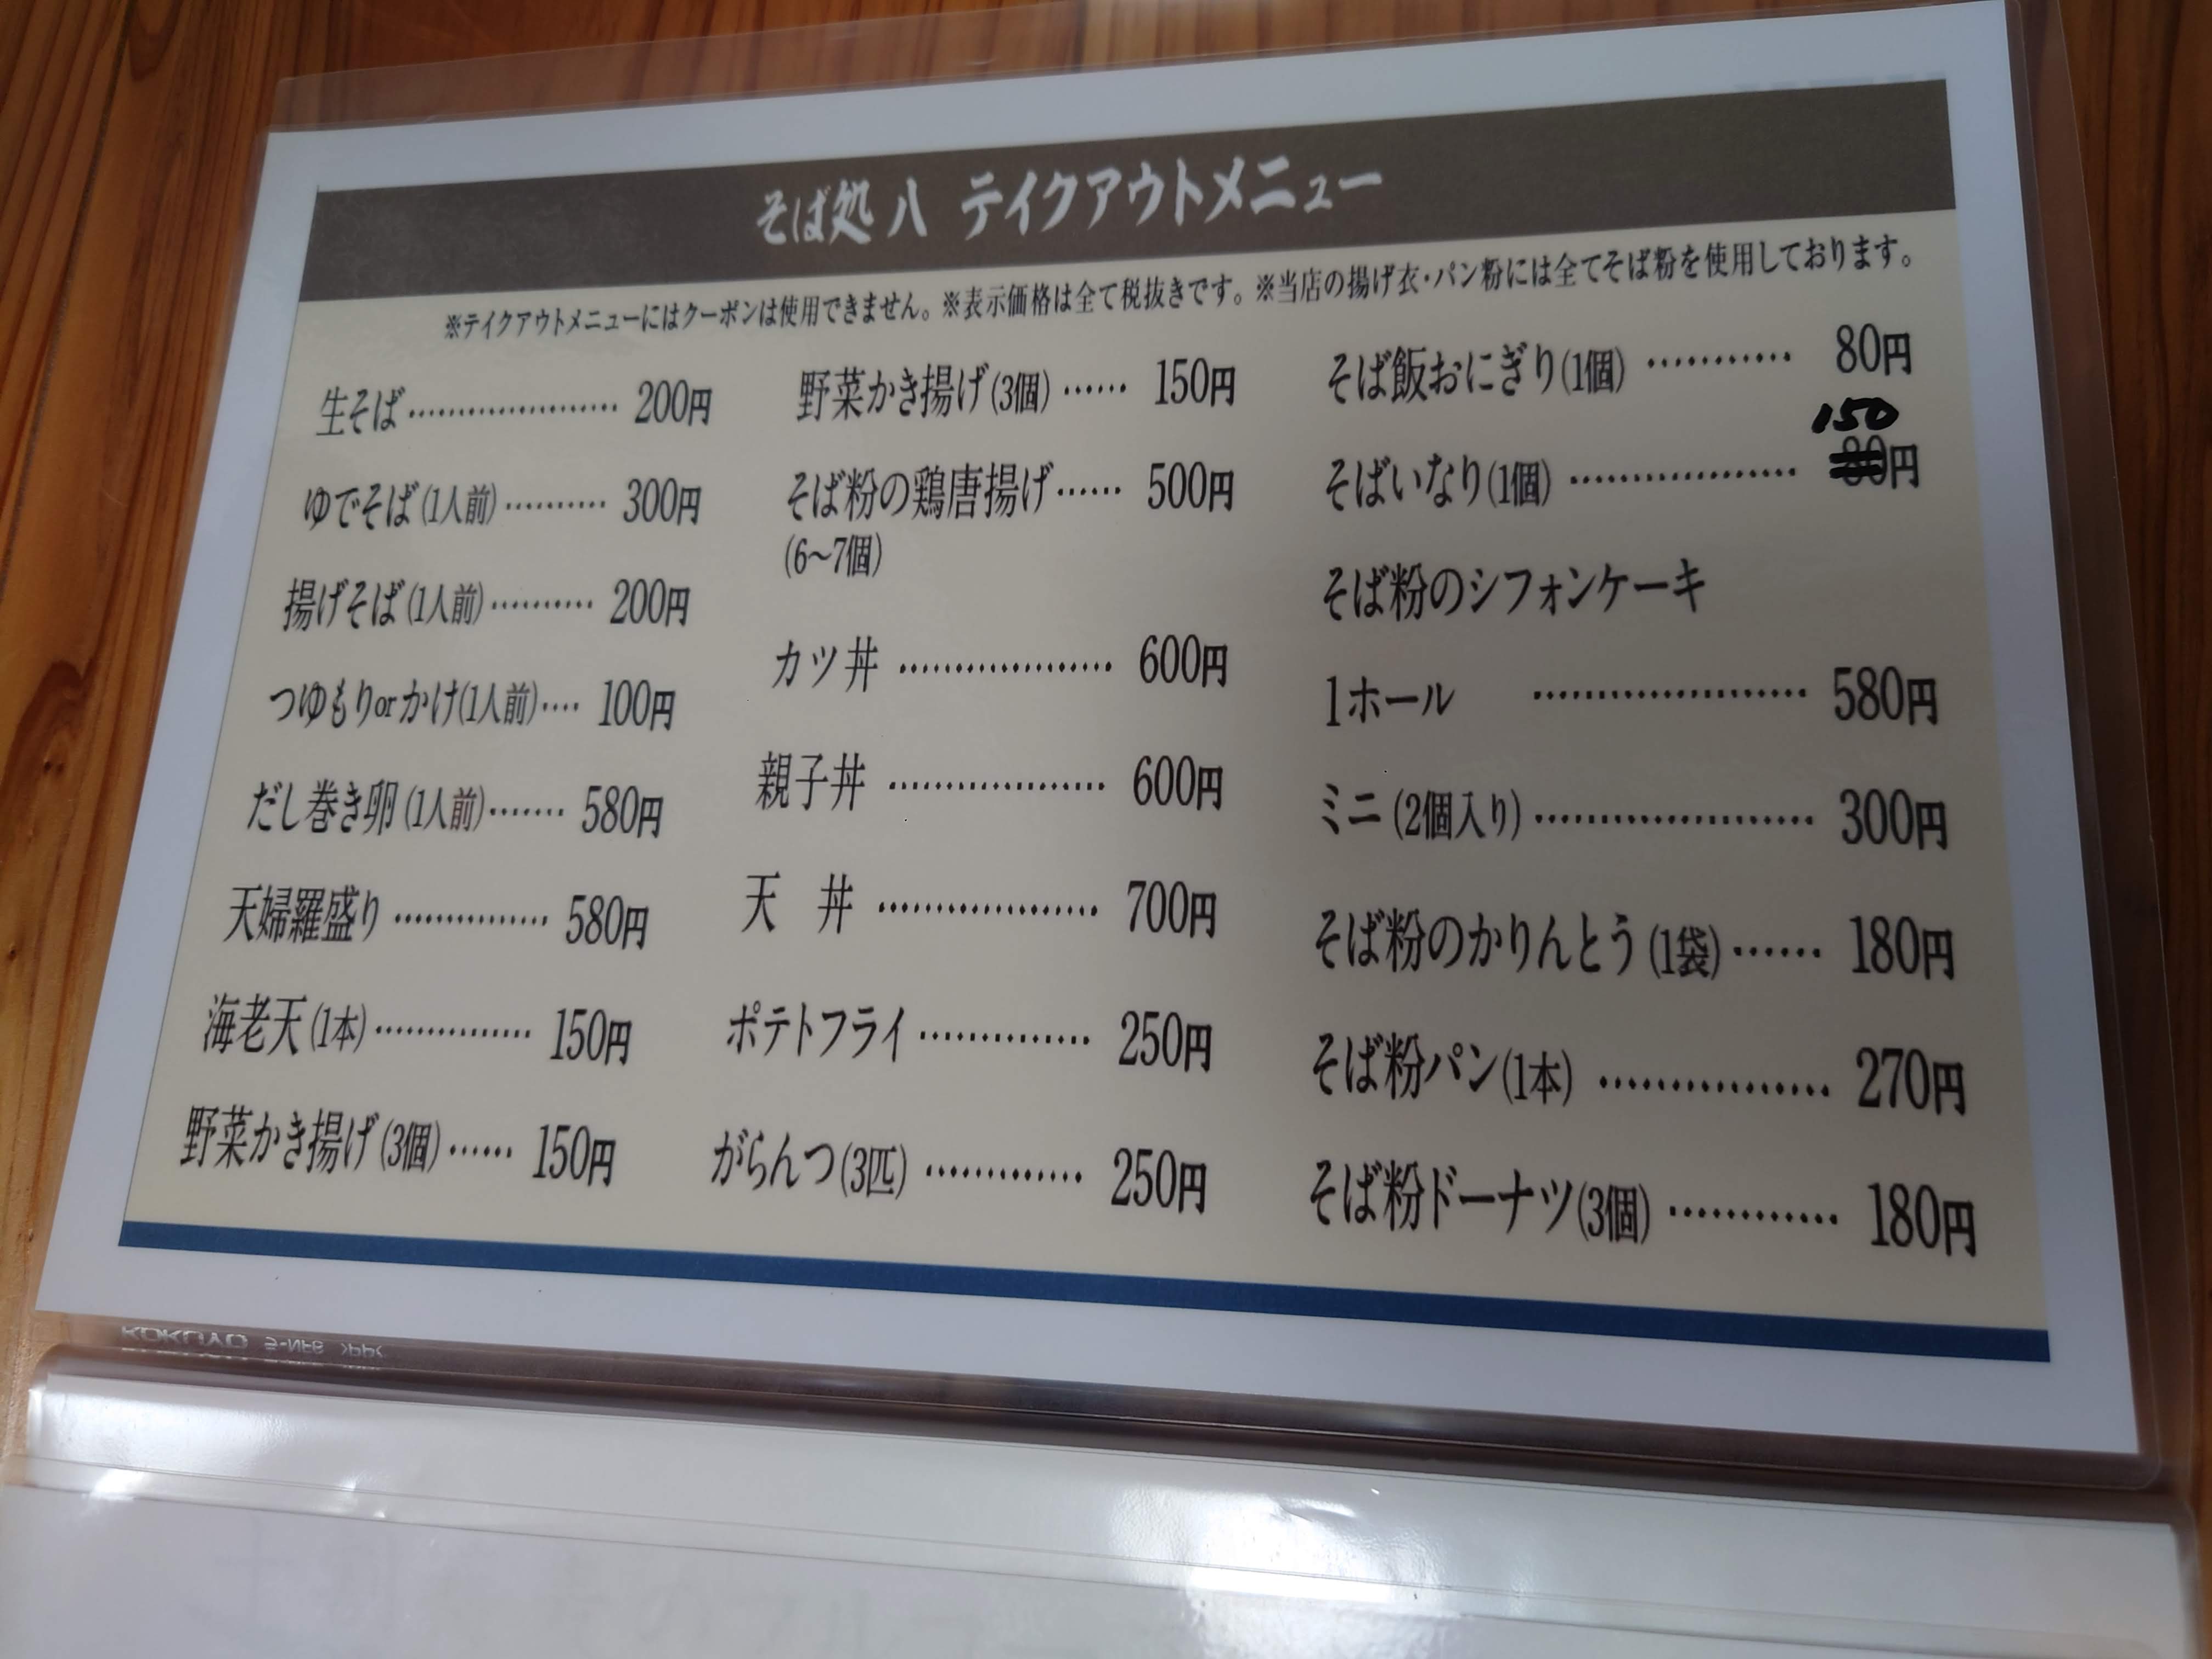 そば処 八 テイクアウトメニュー
※テイクアウトメニューにはクーポンは使用できません。※表示価格は全て税抜きです。※当店の揚げ衣・パン粉には全てそば粉を使用しております。
生そば…………………… 200円
ゆでそば(1人前)………… 300円
揚げそば(1人前)………… 200円
つゆもりorかけ(1人前)…… 100円
だし巻き卵(1人前)……… 580円
天婦羅盛り……………… 580円
海老天(1本)……………… 150円
野菜かき揚げ(3個)…… 150円
野菜かき揚げ(3個)…… 150円
そば粉の鶏唐揚げ…… 500円
(6〜7個)
カツ丼 …………………… 600円
親子丼 …………………… 600円
天 丼 …………………… 700円
ポテトフライ…………… 250円
がらんつ(3匹) ………… 250円
そば飯おにぎり(1個) ………… 80円
150
そばいなり(1個) ………………… 80円
そば粉のシフォンケーキ
1ホール ………………… 580円
ミニ(2個入り)………………… 300円
そば粉のかりんとう(1袋)…… 180円
そば粉パン(1本) ……………… 270円
そば粉ドーナツ(3個) ………… 180円
KOKUYO